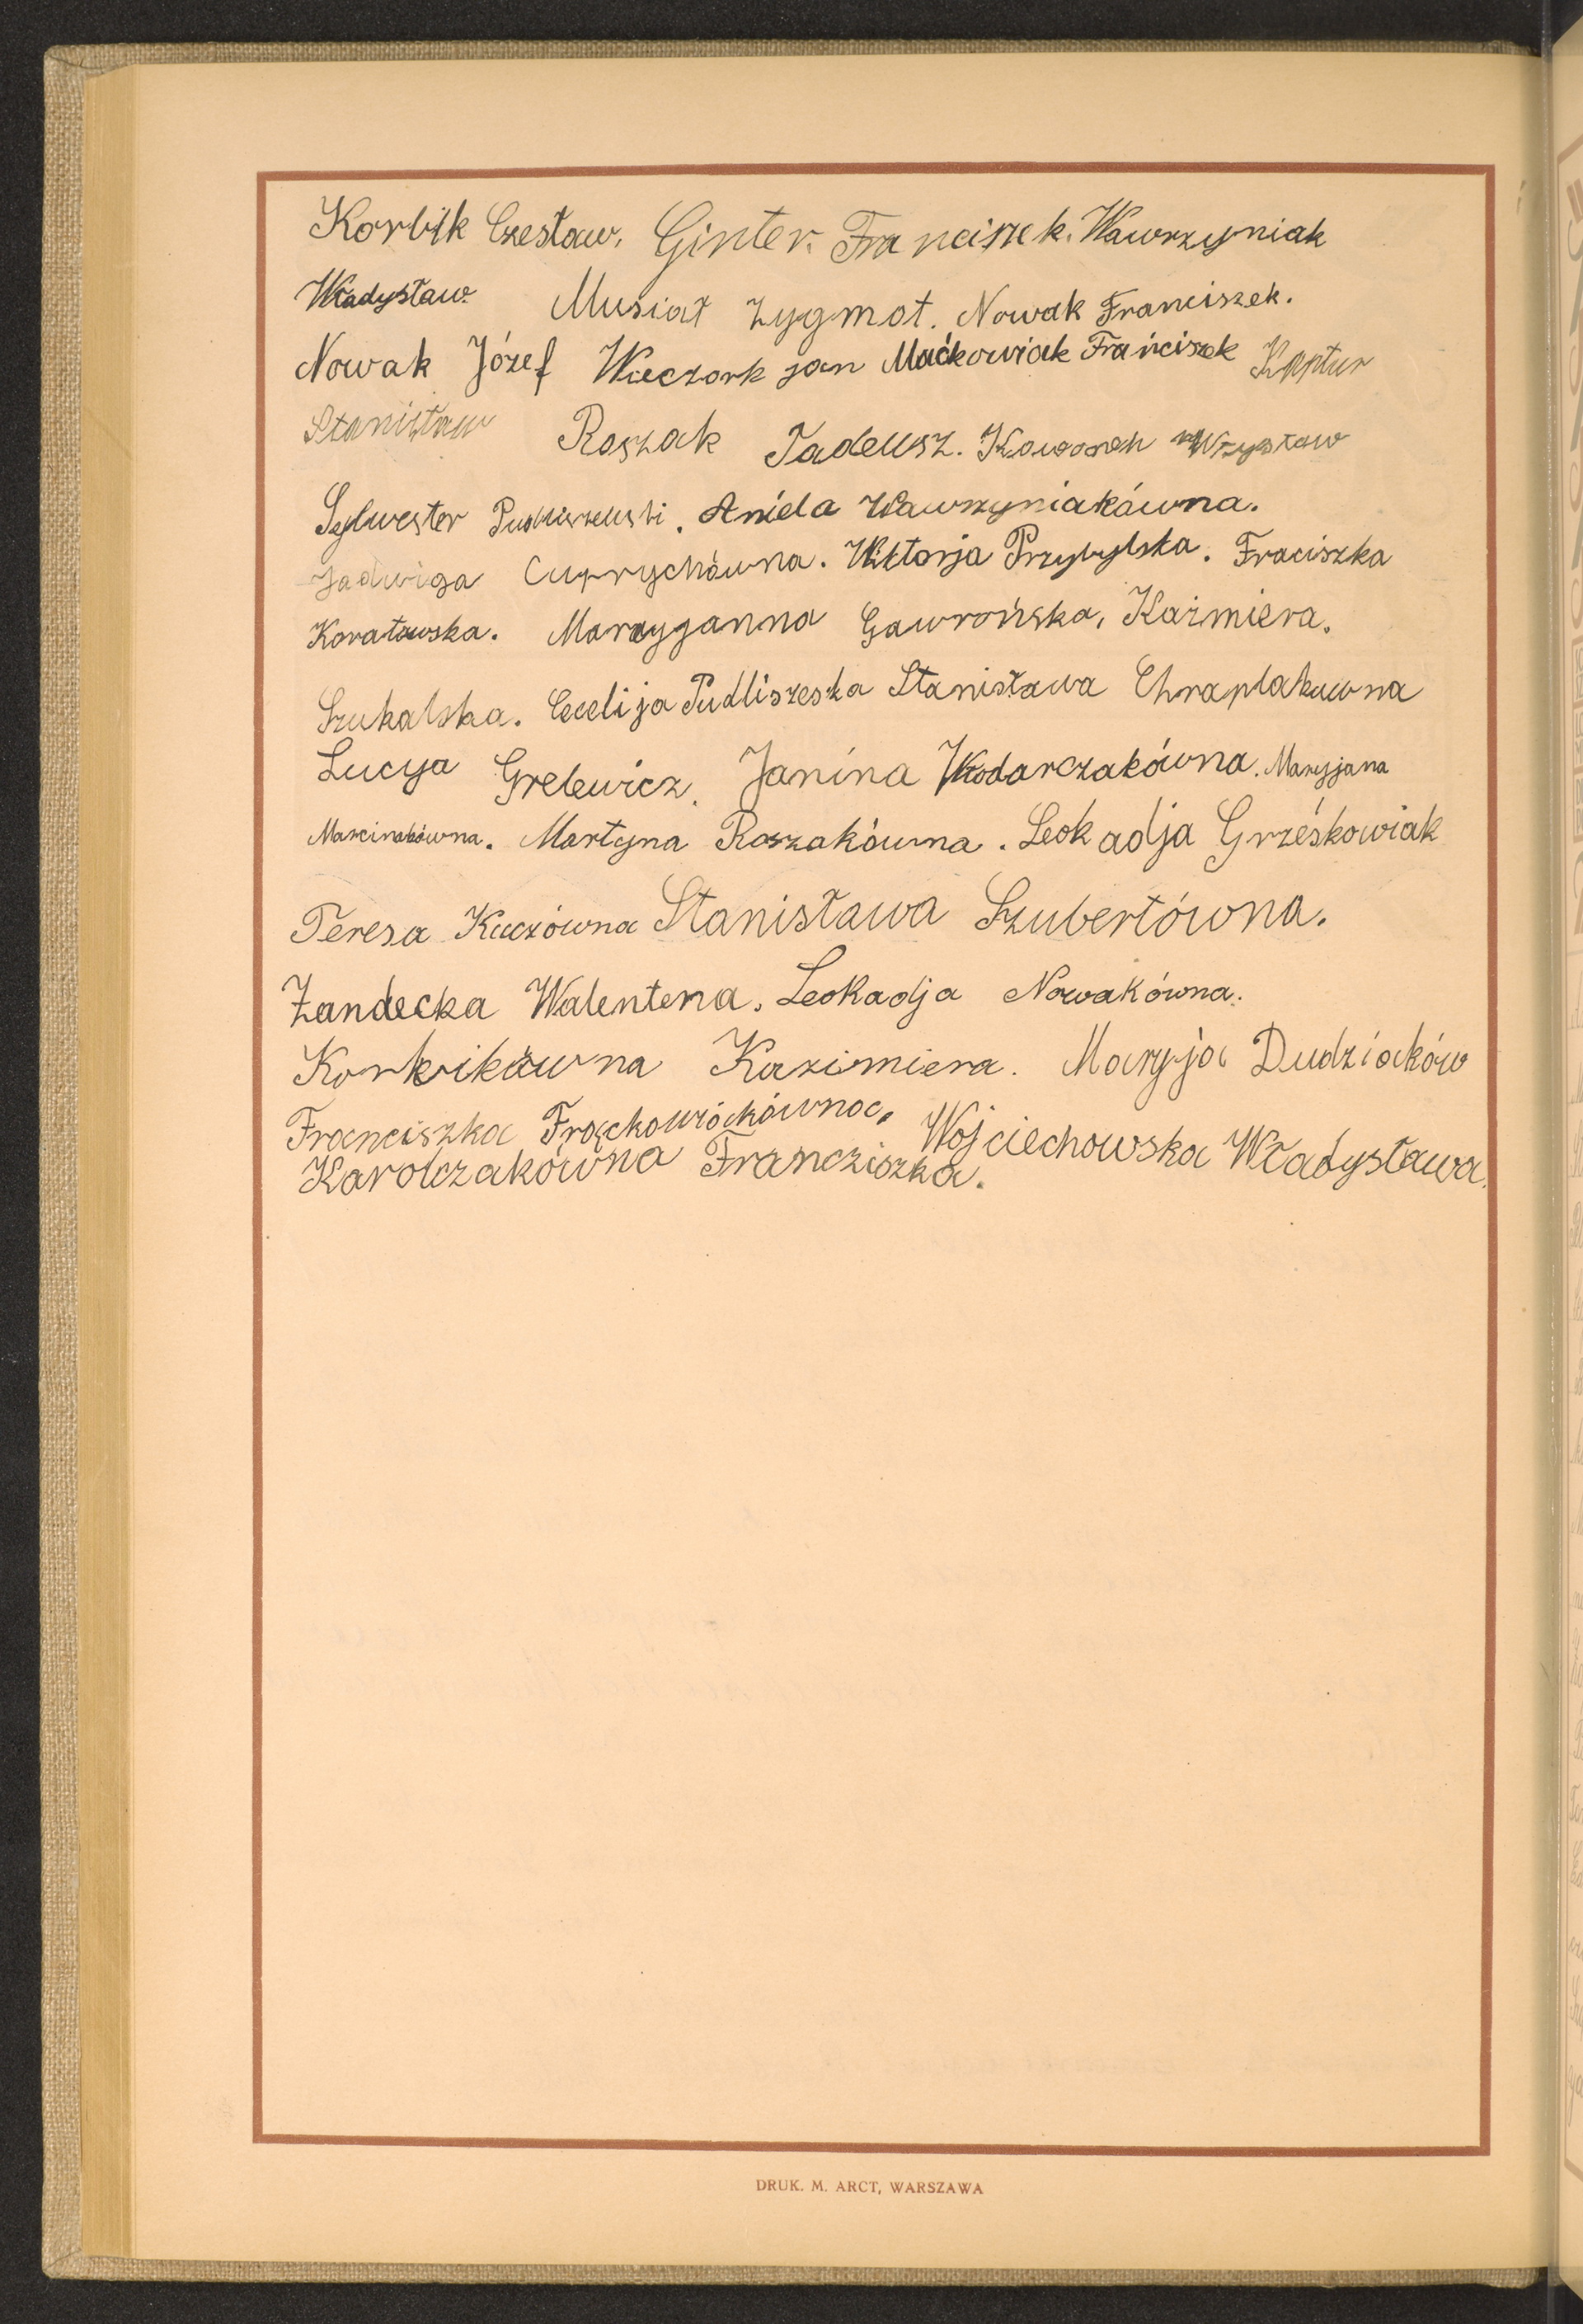 Korbik Czesław. Ginter. Franciszek. Wawrzyniak
Władysław Musiał Zygmot. Nowak Franciszek.
Nowak Józef Wieczork jan Maćkowiak Frańciszek Kaptur
Stanisław Roszak Tadeusz.
Sylwester Pudliszewski. Aniela Wawrzyniakówna.
Jadwiga Cuprychówna. Wiktorja Przybylska. Fraciszka
Koratowska. Maryjanna Gawrońska, Kaźmiera.
Szukalska. Cecelija Pudliszeska Stanisława Chraplakuwna
Lucya Grelewicz. Janina Włodarczakówna. Maryjana
Marcinakówna. Martyna Roszakówna. Leokadja Grześkowiak
Teresa Kuczówna Stanisława Szubertówna.
Żandecka Walentena. Leokadja Nowakówna.
Korbikówna Kazimiera. Maryja Dudziaków
Franciszka Frąckowiakówna. Wojciechowska Władysława.
Karolczakówna Francziszka.
DRUK. M. ARCT, WARSZAWA